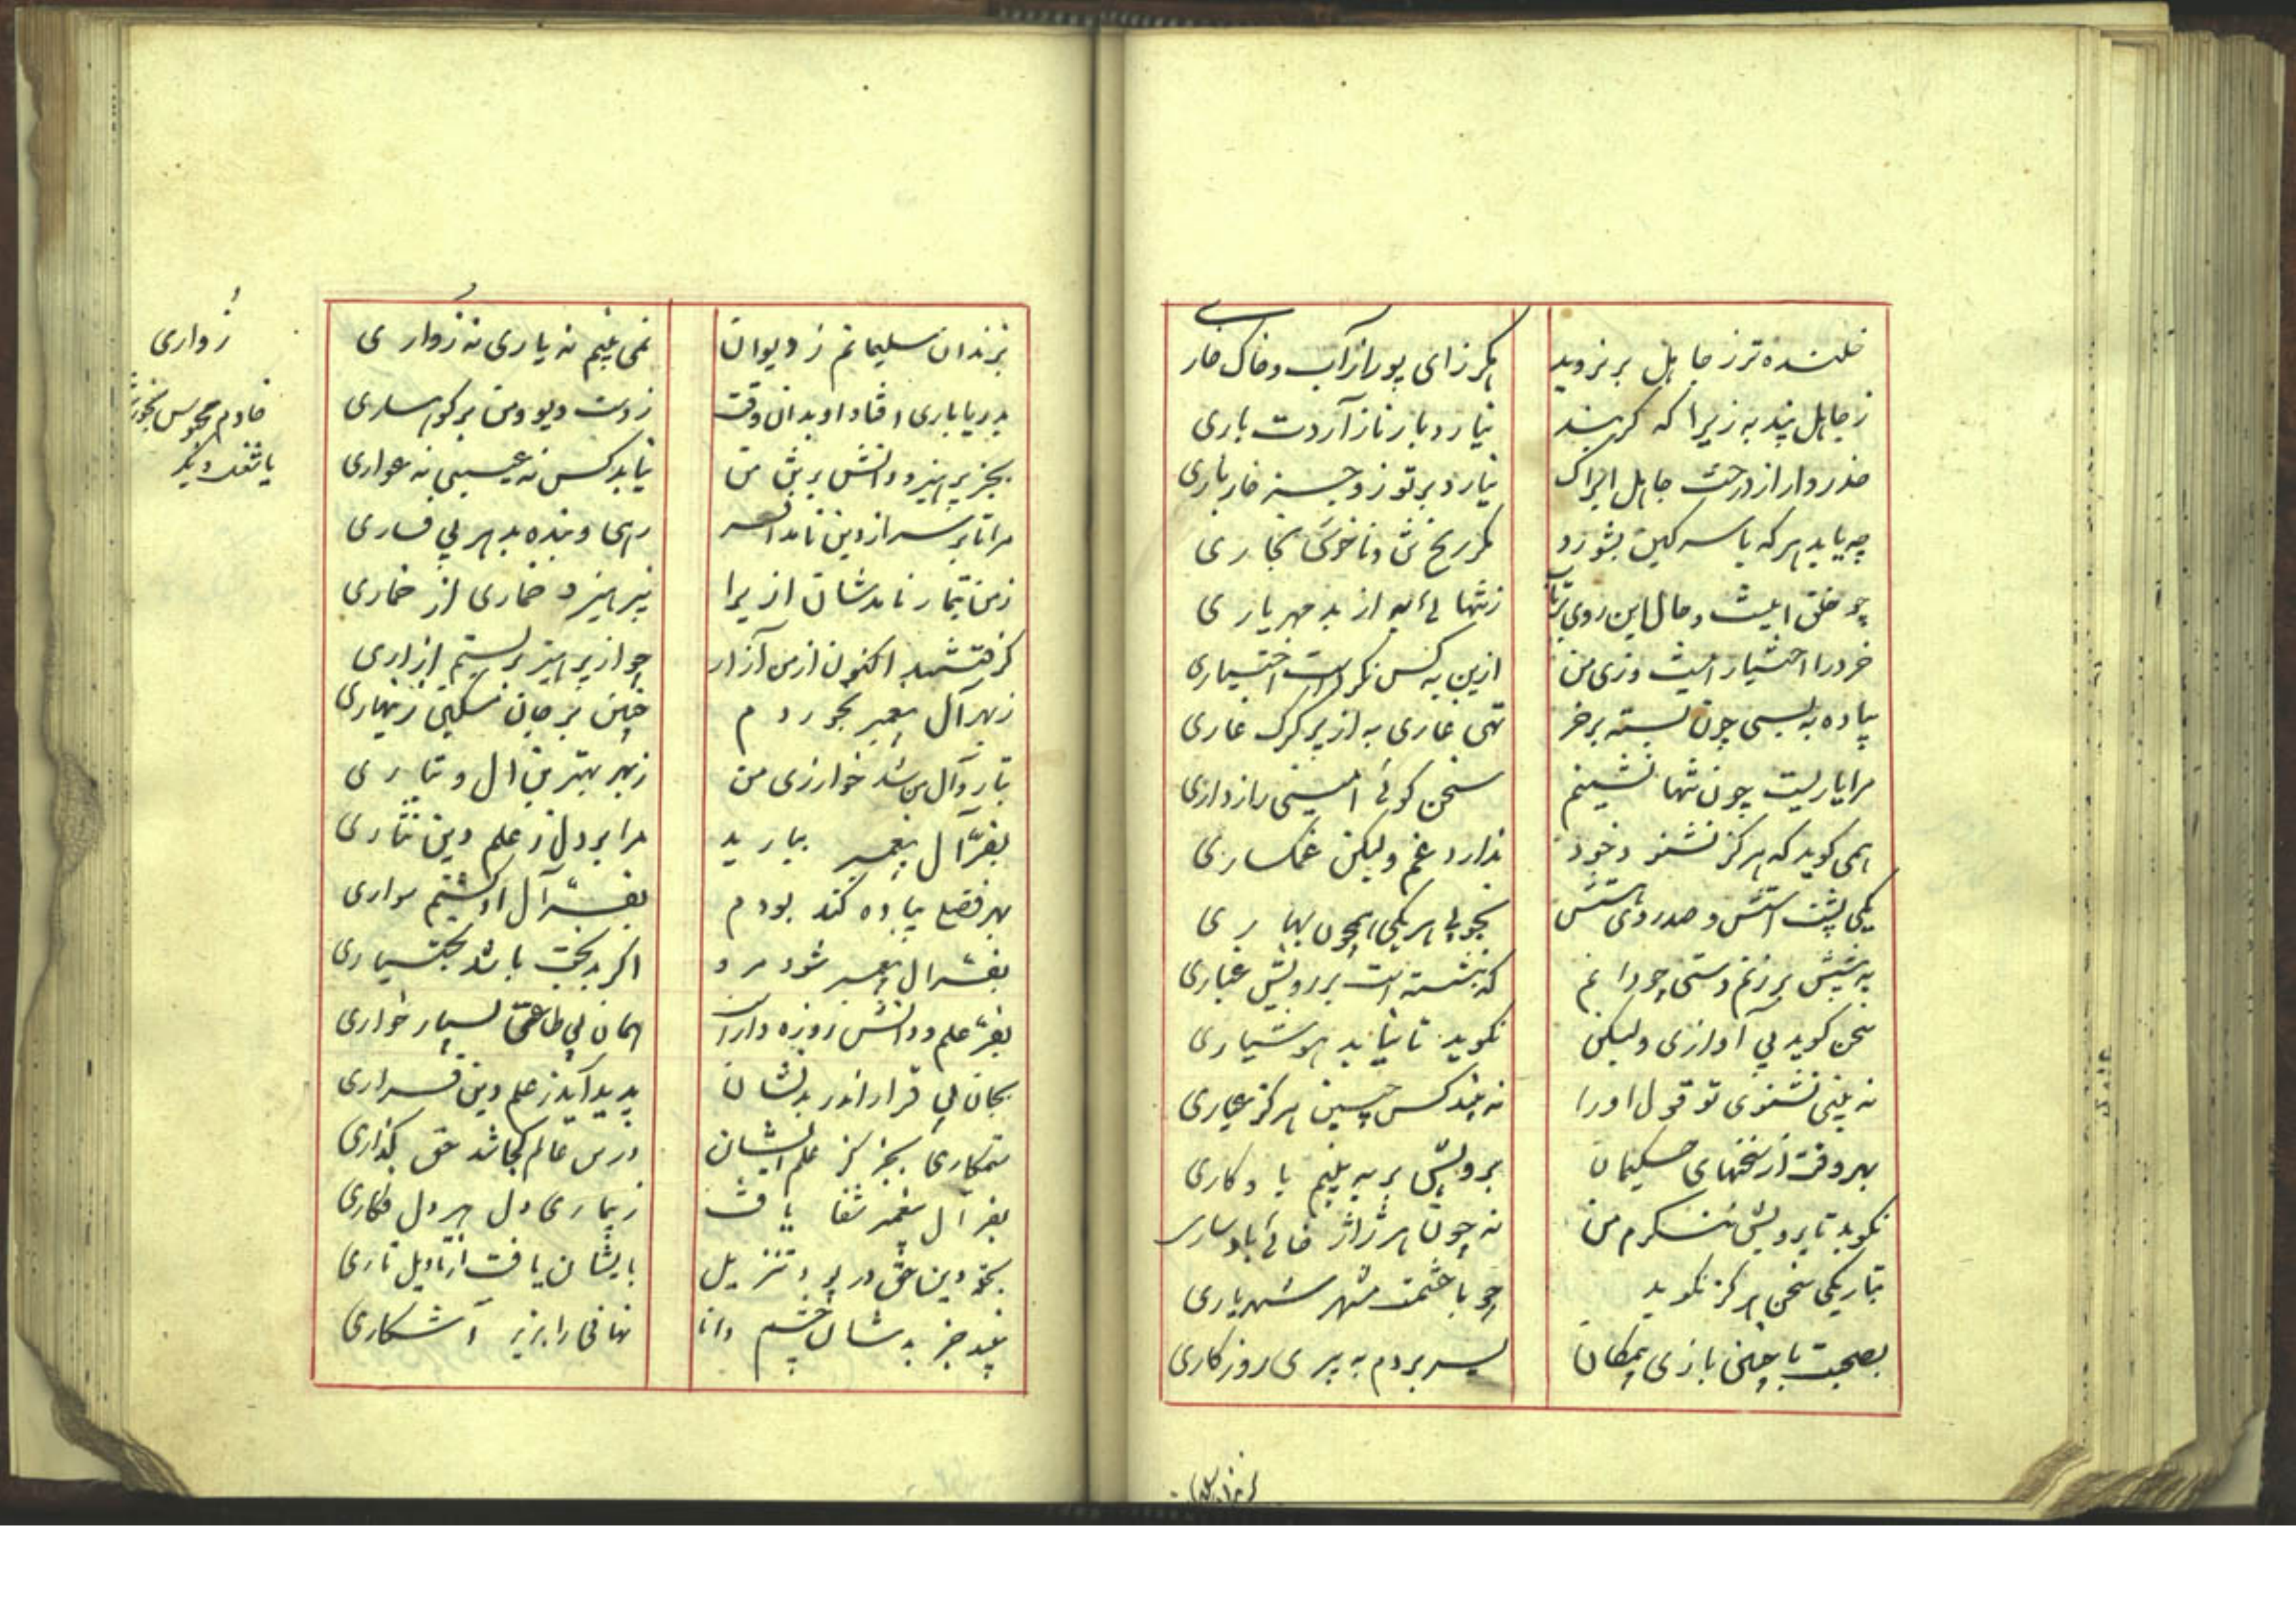 خلنده‌تر ز جاهل بر نروید
هگرز ای پور ز آب و خاک خاری
ز جاهل بید به زیرا که گر بید
نیارد بار نازآردت باری
حذر دار از درخت جاهل ایراک
نیارد بر تو زو جز خار باری
چه یابد هرکه با سرگین بشورد
مگر رنج تن و ناخوش بخاری
چو خلق اینست و حال این روی برتاب
ز تنهائی به از بد مهر یاری
خرد را اختیار اینست وزی من
ازین به کس نکردست اختیاری
پیاده به بسی چون بسته بر خر
تهی غاری به از پر گرگ غاری
مرا یاریست چون تنها نشینم
سخن گوئی امینی رازداری
همی گوید که هرگز نشنود خود
ندارد غم ولیکن غمگساری
یکی پشت استش و صد روی هستش
بخوبی هر یکی همچون بهاری
به پشتش بر زنم دستی چو دانم
که بنشسته است بر رویش غباری
سخن گوید بی آوازی ولیکن
نگوید تا نیابد هوشیاری
نه بینی نشنوی تو قول او را
نه بیند کس چنین هرگز عیاری
بهر وقت از سخنهای حکیمان
برویش بر به بینم یادگاری
نگوید تا برویش ننگرم من
نه چون هر ژاژ خائی بادساری
بتاریکی سخن هرگز نگوید
چو با حشمت مشهر شهریاری
بصحبت با چنین یاری بیمکان
بسر بردم به پیری روزگاری
بزندان سلیمانم ز دیوان
نمی بینم نه یاری نه زواری
بدریا باری افتاد او بدان وقت
ز دست دیو و من بر کوهساری
بجز پرهیز و دانش بر تن من
نیابد کس نه عیبی نه عواری
مرا تا بر سر از دین نامد افسر
رهی و بنده بد هر بی فساری
ز من تیمار نامدشان ازیرا
نپرهیزد خماری از خماری
گرفتستند اکنون از من آزار
چو از پرهیز بربستم ازاری
ز بهر آل پیغمبر بخوردم
چنین بر جان مسکین زینهاری
تبار و آل من شد خوار زی من
ز بهر بهترین آل و تباری
بفر آل پیغمبر ببارید
مرا بر دل ز علم دین نثاری
بهر فضلی پیاده کند بودم
بفر آل او گشتم سواری
بفر آل پیغمبر شود مرد
اگر بدبخت باشد بختیاری
بفر علم و دانش روزه دار است
همان بی طاعتی بسیار خواری
بجان بی قرار اندر بدیشان
پدید آید ز علم دین قراری
ستمکاری بجز کز علم ایشان
درین عالم کجا شد حق گذاری
بفر آل پیغمبر شفا یافت
ز بیماری دل هر دل فگاری
بخود دین حق در بود تنزیل
بایشان یافت از تاویل تاری
نبیند جز بدیشان چشم دانا
نهانی را بزیر آشکاری
زواری
بزندان سلیمان